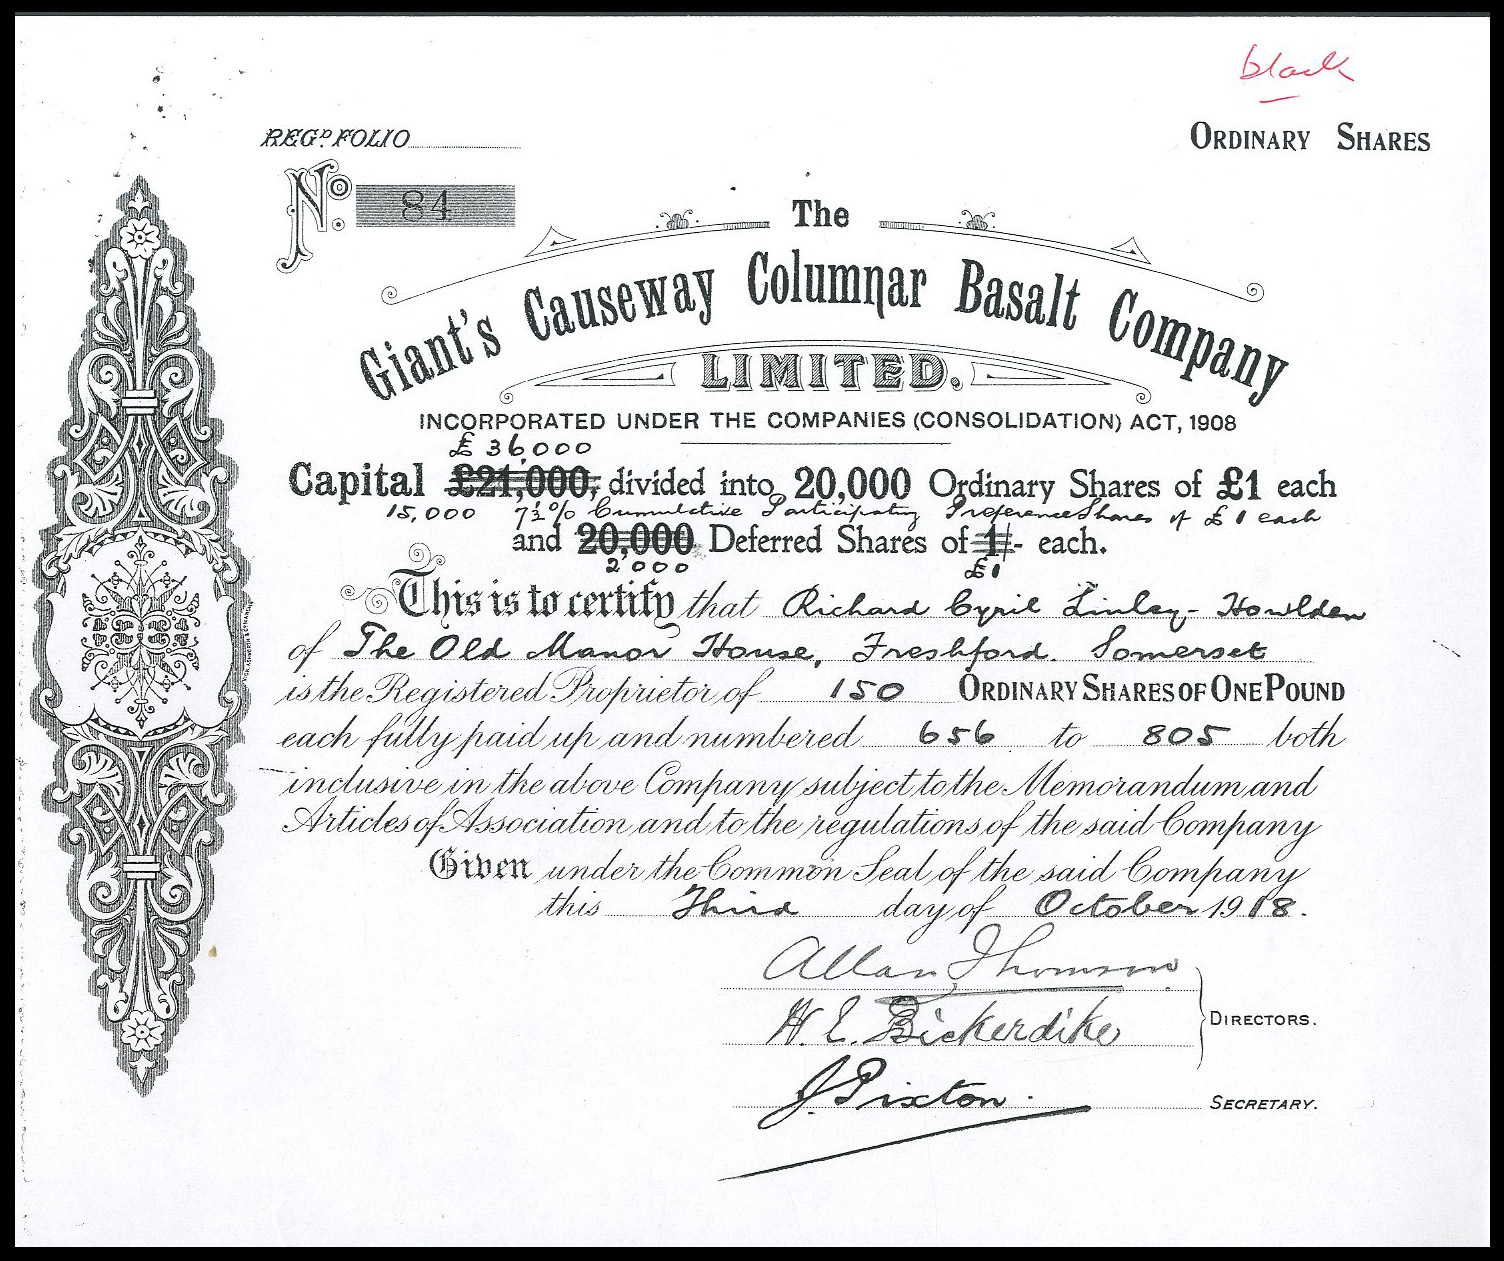 black
REGD. FOLIO
ORDINARY SHARES
No. 84
The
Giant's Causeway Columnar Basalt Company
LIMITED.
INCORPORATED UNDER THE COMPANIES (CONSOLIDATION) ACT, 1908
£36,000
Capital £21,000, divided into 20,000 Ordinary Shares of £1 each
15,000 7½% Cumulative Participating Preference Shares of £1 each
and 20,000 Deferred Shares of 1/- each.
2,000 £1
This is to certify that Richard Cyril Linley-Howlden
of The Old Manor House, Freshford. Somerset
is the Registered Proprietor of 150 ORDINARY SHARES OF ONE POUND
each fully paid up and numbered 656 to 805 both
inclusive in the above Company subject to the Memorandum and
Articles of Association and to the regulations of the said Company
Given under the Common Seal of the said Company
this Third day of October 1918.
Allan Thomson
H. E. Bickerdike
DIRECTORS.
J. Pixton.
SECRETARY.